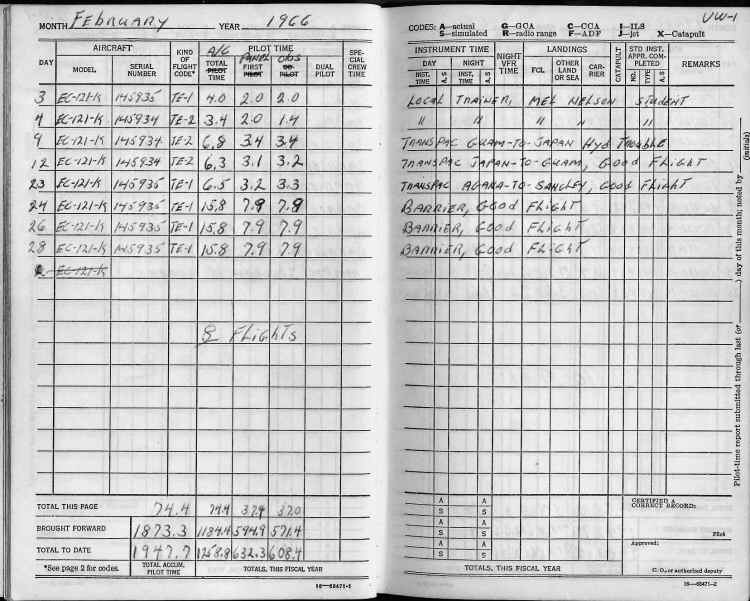 MONTH February YEAR 1966
AIRCRAFT KIND OF FLIGHT CODE* A/C PILOT TIME SPECIAL CREW TIME
DAY MODEL SERIAL NUMBER TOTAL PILOT TIME PANEL FIRST PILOT OBS CO-PILOT DUAL PILOT
3 EC-121-K 145935 TE-1 4.0 2.0 2.0
4 EC-121-K 145934 TE-2 3.4 2.0 1.4
9 EC-121-K 145934 TE-2 6.8 3.4 3.4
12 EC-121-K 145934 TE-2 6.3 3.1 3.2
23 EC-121-K 145935 TE-1 6.5 3.2 3.3
24 EC-121-K 145935 TE-1 15.8 7.9 7.9
26 EC-121-K 145935 TE-1 15.8 7.9 7.9
28 EC-121-K 145935 TE-1 15.8 7.9 7.9
EC-121-K
8 FLIGHTS
TOTAL THIS PAGE 74.4 74.4 37.4 37.0
BROUGHT FORWARD 1873.3 1184.4 594.9 571.4
TOTAL TO DATE 1947.7 1258.8 632.3 608.4
*See page 2 for codes. TOTAL ACCUM. PILOT TIME TOTALS, THIS FISCAL YEAR
16—68471-1
VW-1
CODES: A—actual G—GCA C—CCA I—ILS
S—simulated R—radio range F—ADF J—jet X—Catapult
INSTRUMENT TIME NIGHT VFR TIME LANDINGS CATAPULT STD INST. APPR. COMPLETED REMARKS
DAY NIGHT FCL OTHER LAND OR SEA CARRIER NO. TYPE A, S
INST. TIME A, S INST. TIME A, S
LOCAL TRAINER, MEL NELSON STUDENT
" " " " "
TRANSPAC GUAM-TO-JAPAN HYD TROUBLE
TRANSPAC JAPAN-TO-GUAM, GOOD FLIGHT
TRANSPAC AGANA-TO-SANGLEY, GOOD FLIGHT
BARRIER, GOOD FLIGHT
BARRIER, GOOD FLIGHT
BARRIER, GOOD FLIGHT
A A CERTIFIED A CORRECT RECORD:
S S
A A
S S Pilot
A A Approved:
S S
TOTALS, THIS FISCAL YEAR C. O., or authorized deputy
16—68471-2
Pilot-time report submitted through last (or ) day of this month; noted by (initials)